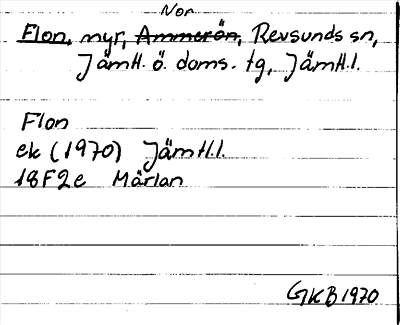 Nor
Flon, myr, Ammerön, Revsunds sn,
Jämtl. ö. doms. tg, Jämtl.l.
Flon
ek (1970) Jämtl.l.
18F2e Märlan
GKB1970